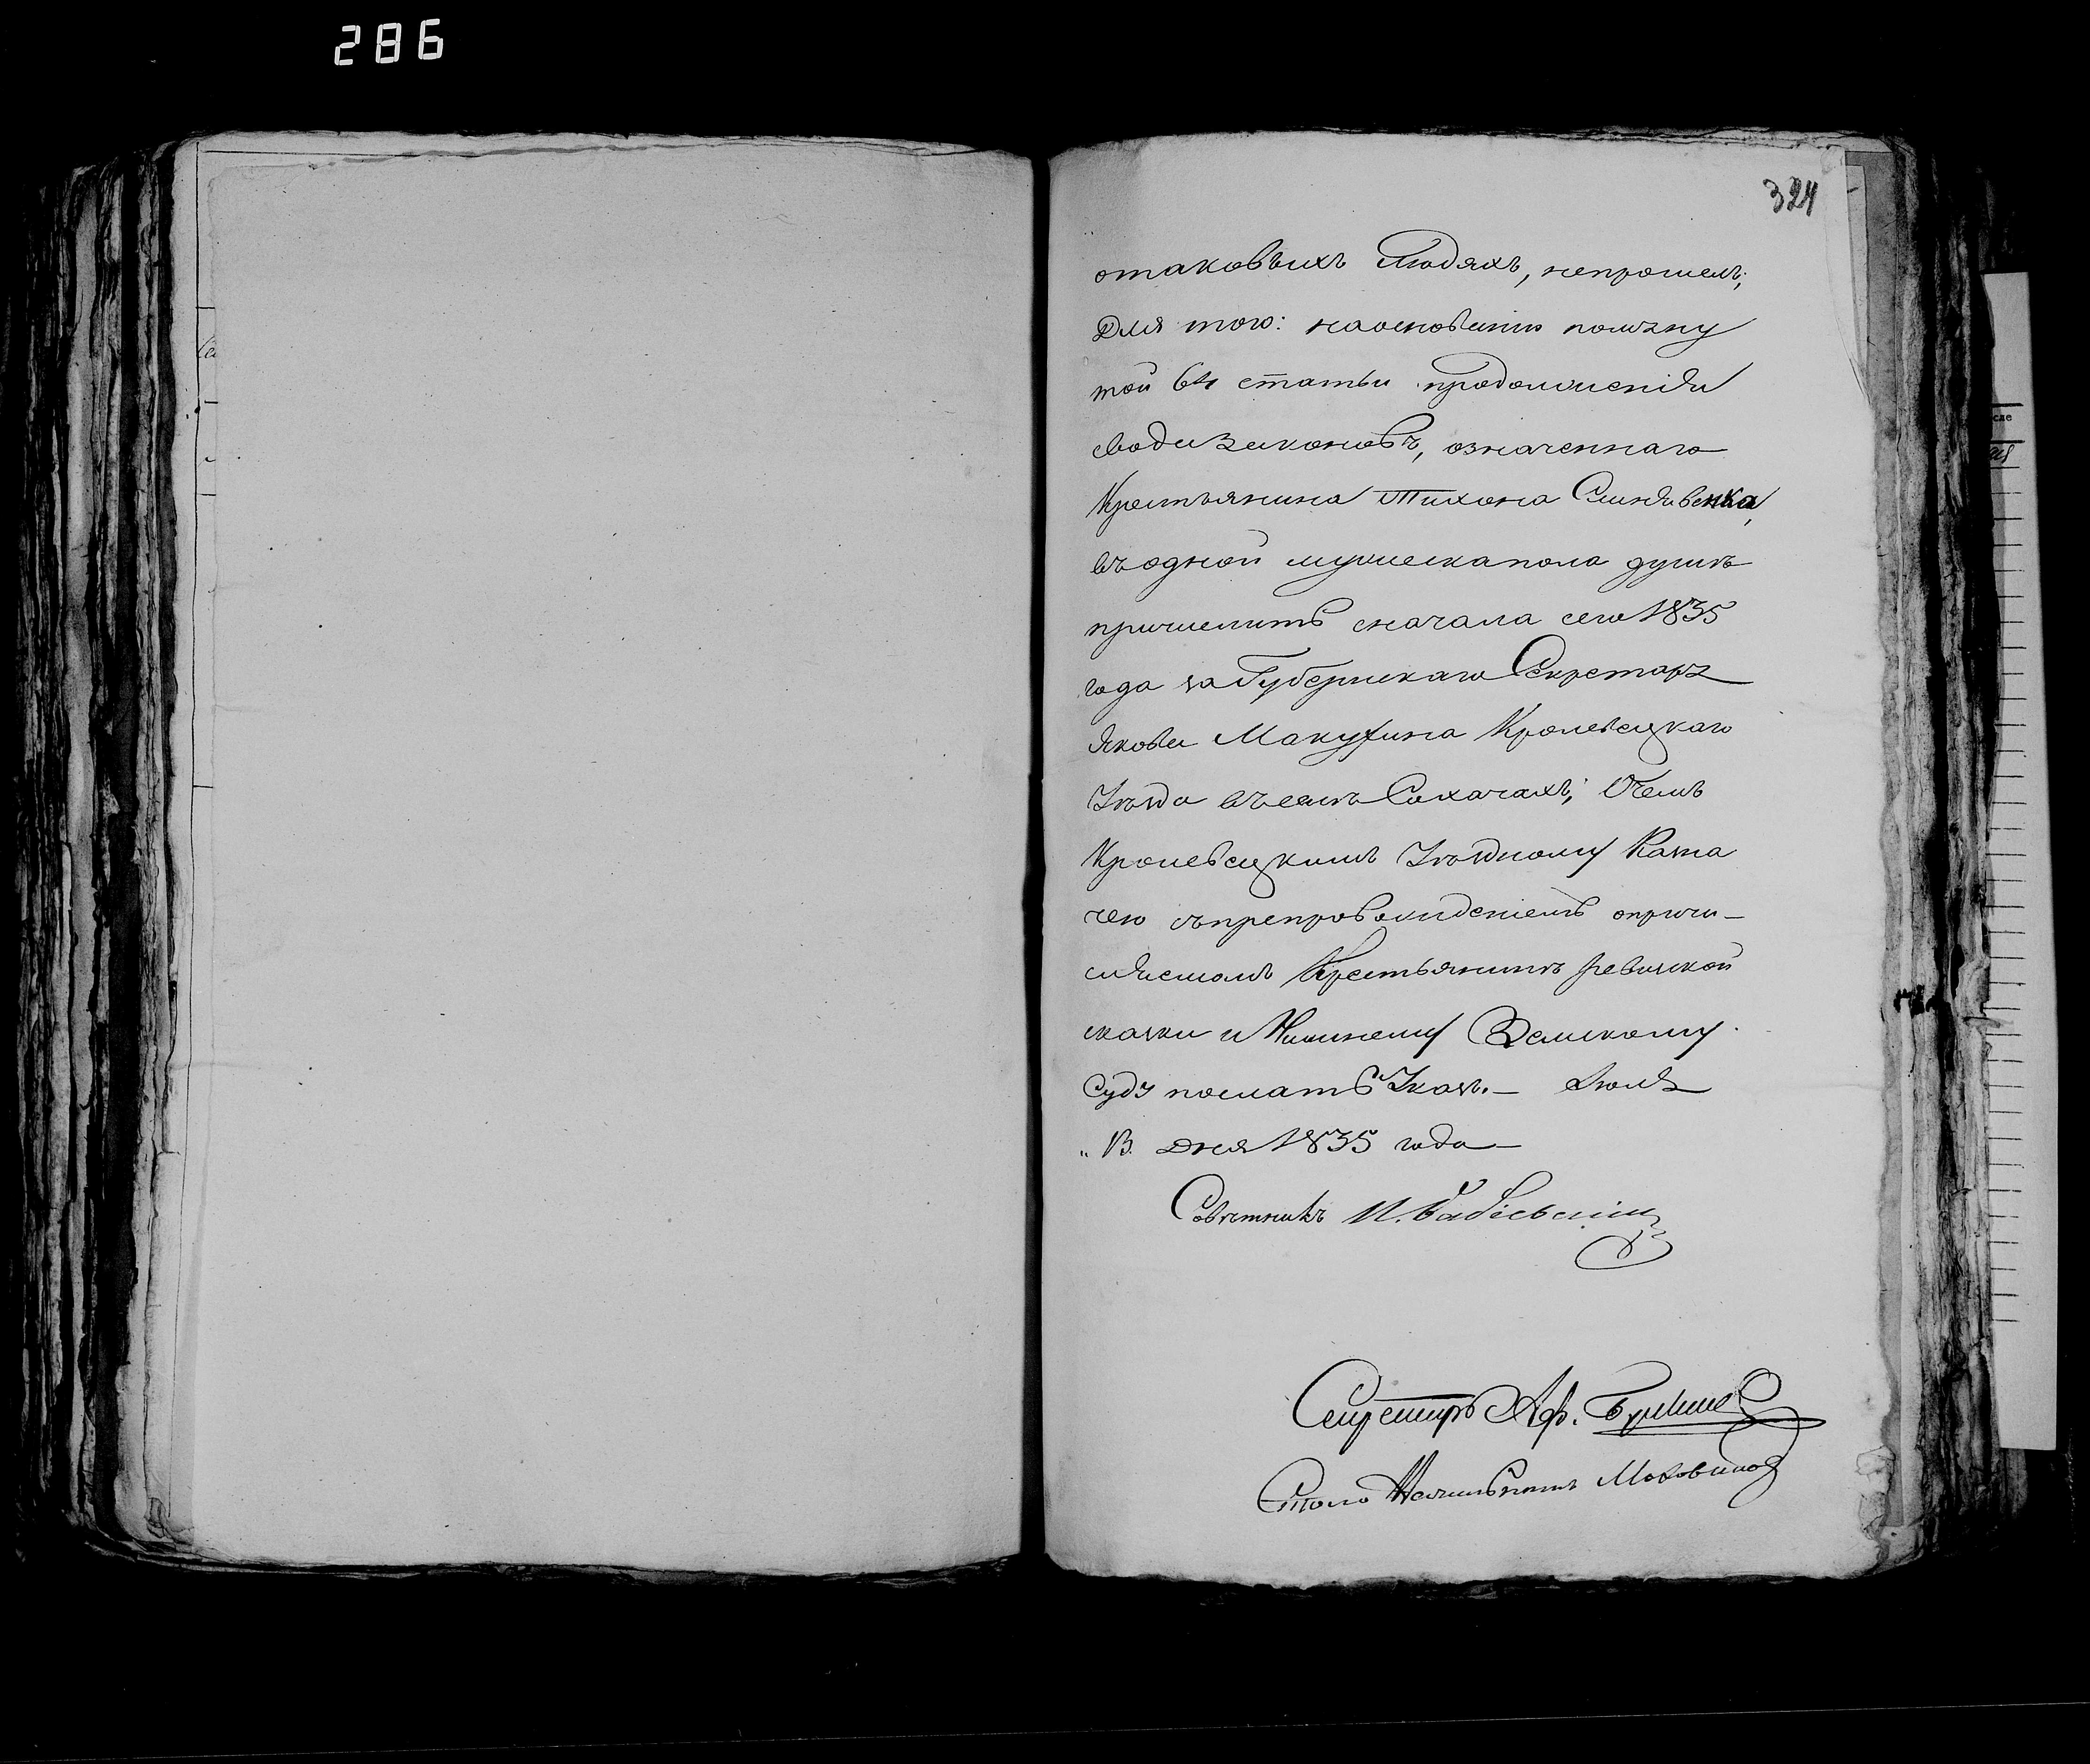 286
324
отаковыхъ Людяхъ, непрошелъ;
Для того: наосновании помяну
той 64 статьи продолженія
свода Законовъ, означеннаго
Крестьянина Тихона
въ одной мужеска пола душѣ
причислить сначала сего 1835
года за Губернскаго Секретаря
Якова Макухина Кролевецкаго
Уѣзда въ селѣ Сохачахъ; Очемъ
Кролевецкимъ Уѣздному Казна
чею съпрепровожденіемъ опричи-
сляемомъ Крестьянинѣ ревизской
скаски и Нижнему Земскому
Суду послать Указъ.— Іюля
" 13. дня 1835 года—
Совѣтникъ И.
Секретарь Аф.
Столо Начальникъ